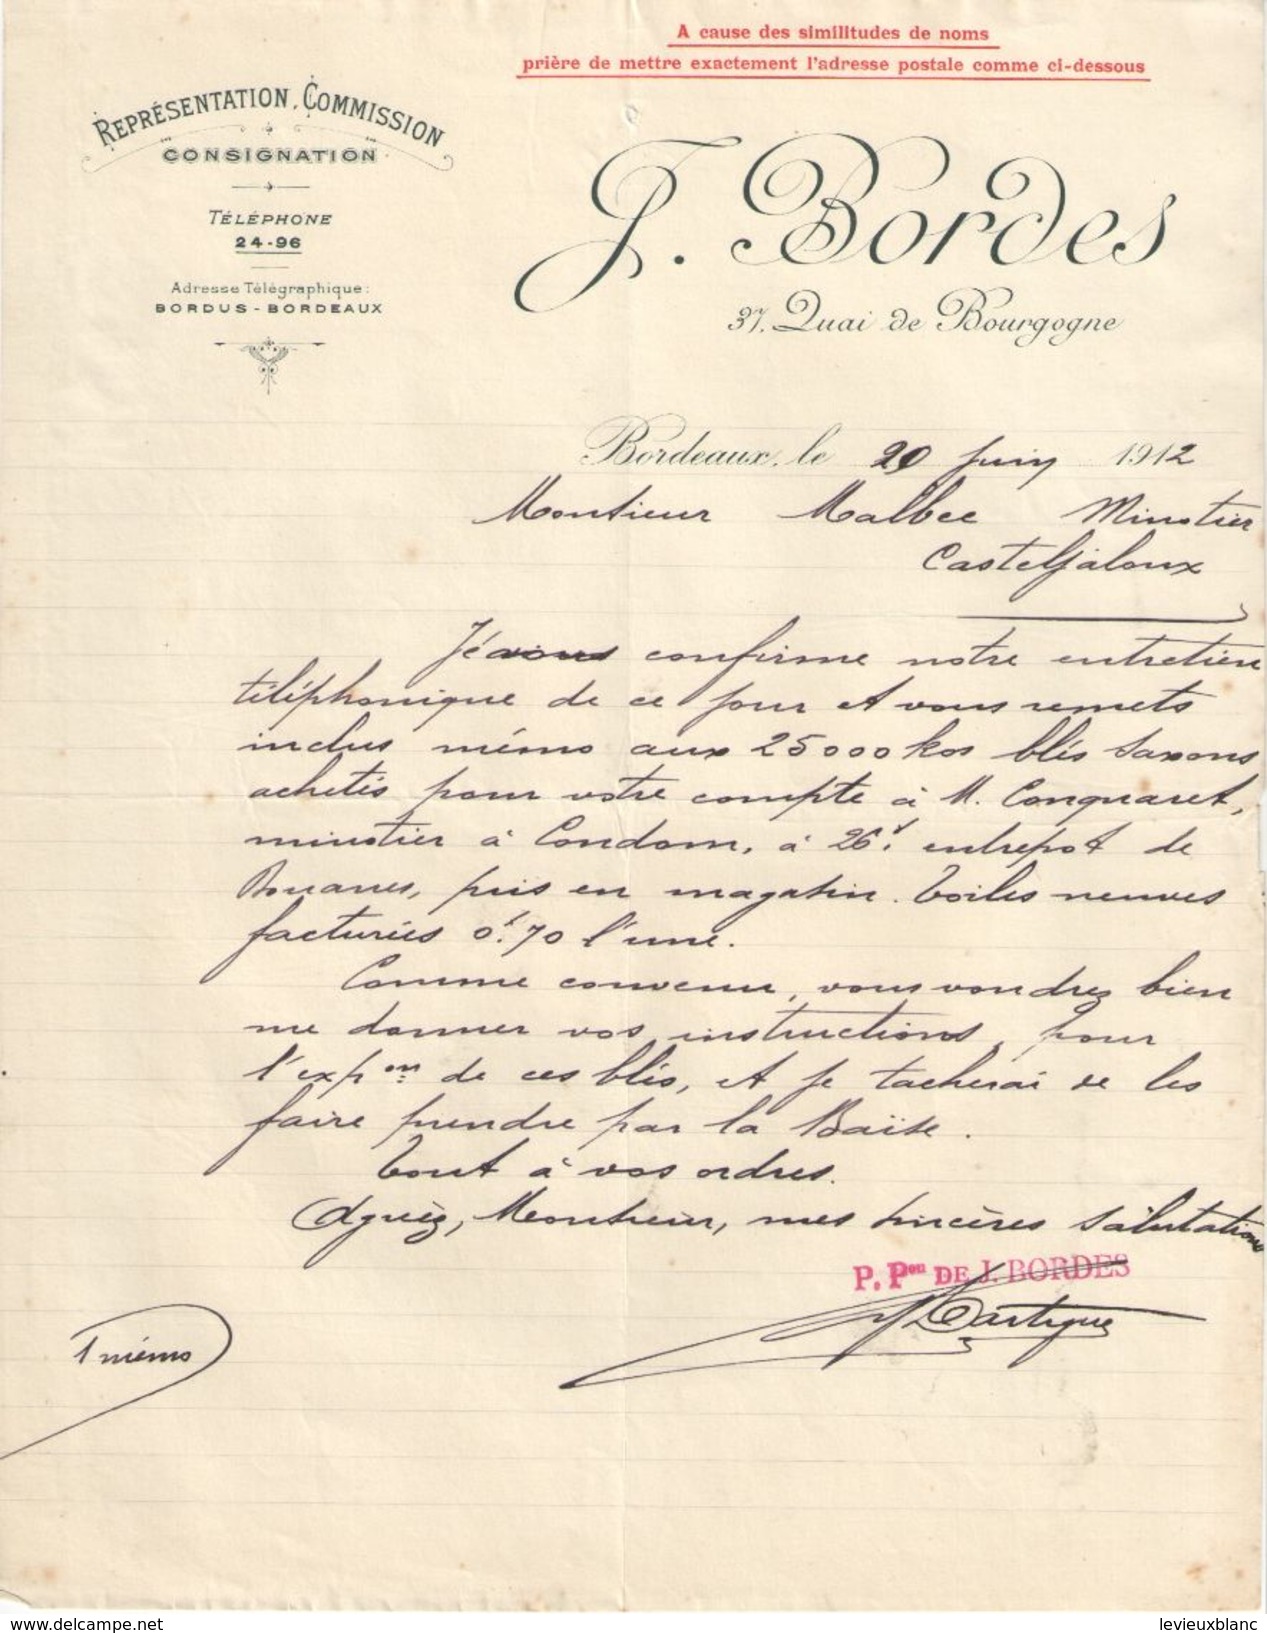 A cause des similitudes de noms
prière de mettre exactement l'adresse postale comme ci-dessous
REPRÉSENTATION, COMMISSION
CONSIGNATION
TÉLÉPHONE
24-96
Adresse Télégraphique:
BORDUS-BORDEAUX
J. Bordes
37, Quai de Bourgogne
Bordeaux, le 20 Juin 1912
Monsieur Malbec Minotier
Casteljaloux
Je vous confirme notre entretien
téléphonique de ce jour et vous remets
inclus mémo aux 25000 kos blés Saxons
achetés pour votre compte à M. Conquaret,
minotier à Condom, à 26f. entrepot de
Douanes, pris en magasin. Toiles neuves
facturées 0f.70 l'une.
Comme convenu, vous voudrez bien
me donner vos instructions, pour
l'expon de ces blés, et je tacherai de les
faire prendre par la Baïse.
Tout à vos ordres.
Agréez, Monsieur, mes sincères Salutations
P. Pon DE J. BORDES
Lartigue
1 mémo
delcampe.net
levieuxblanc